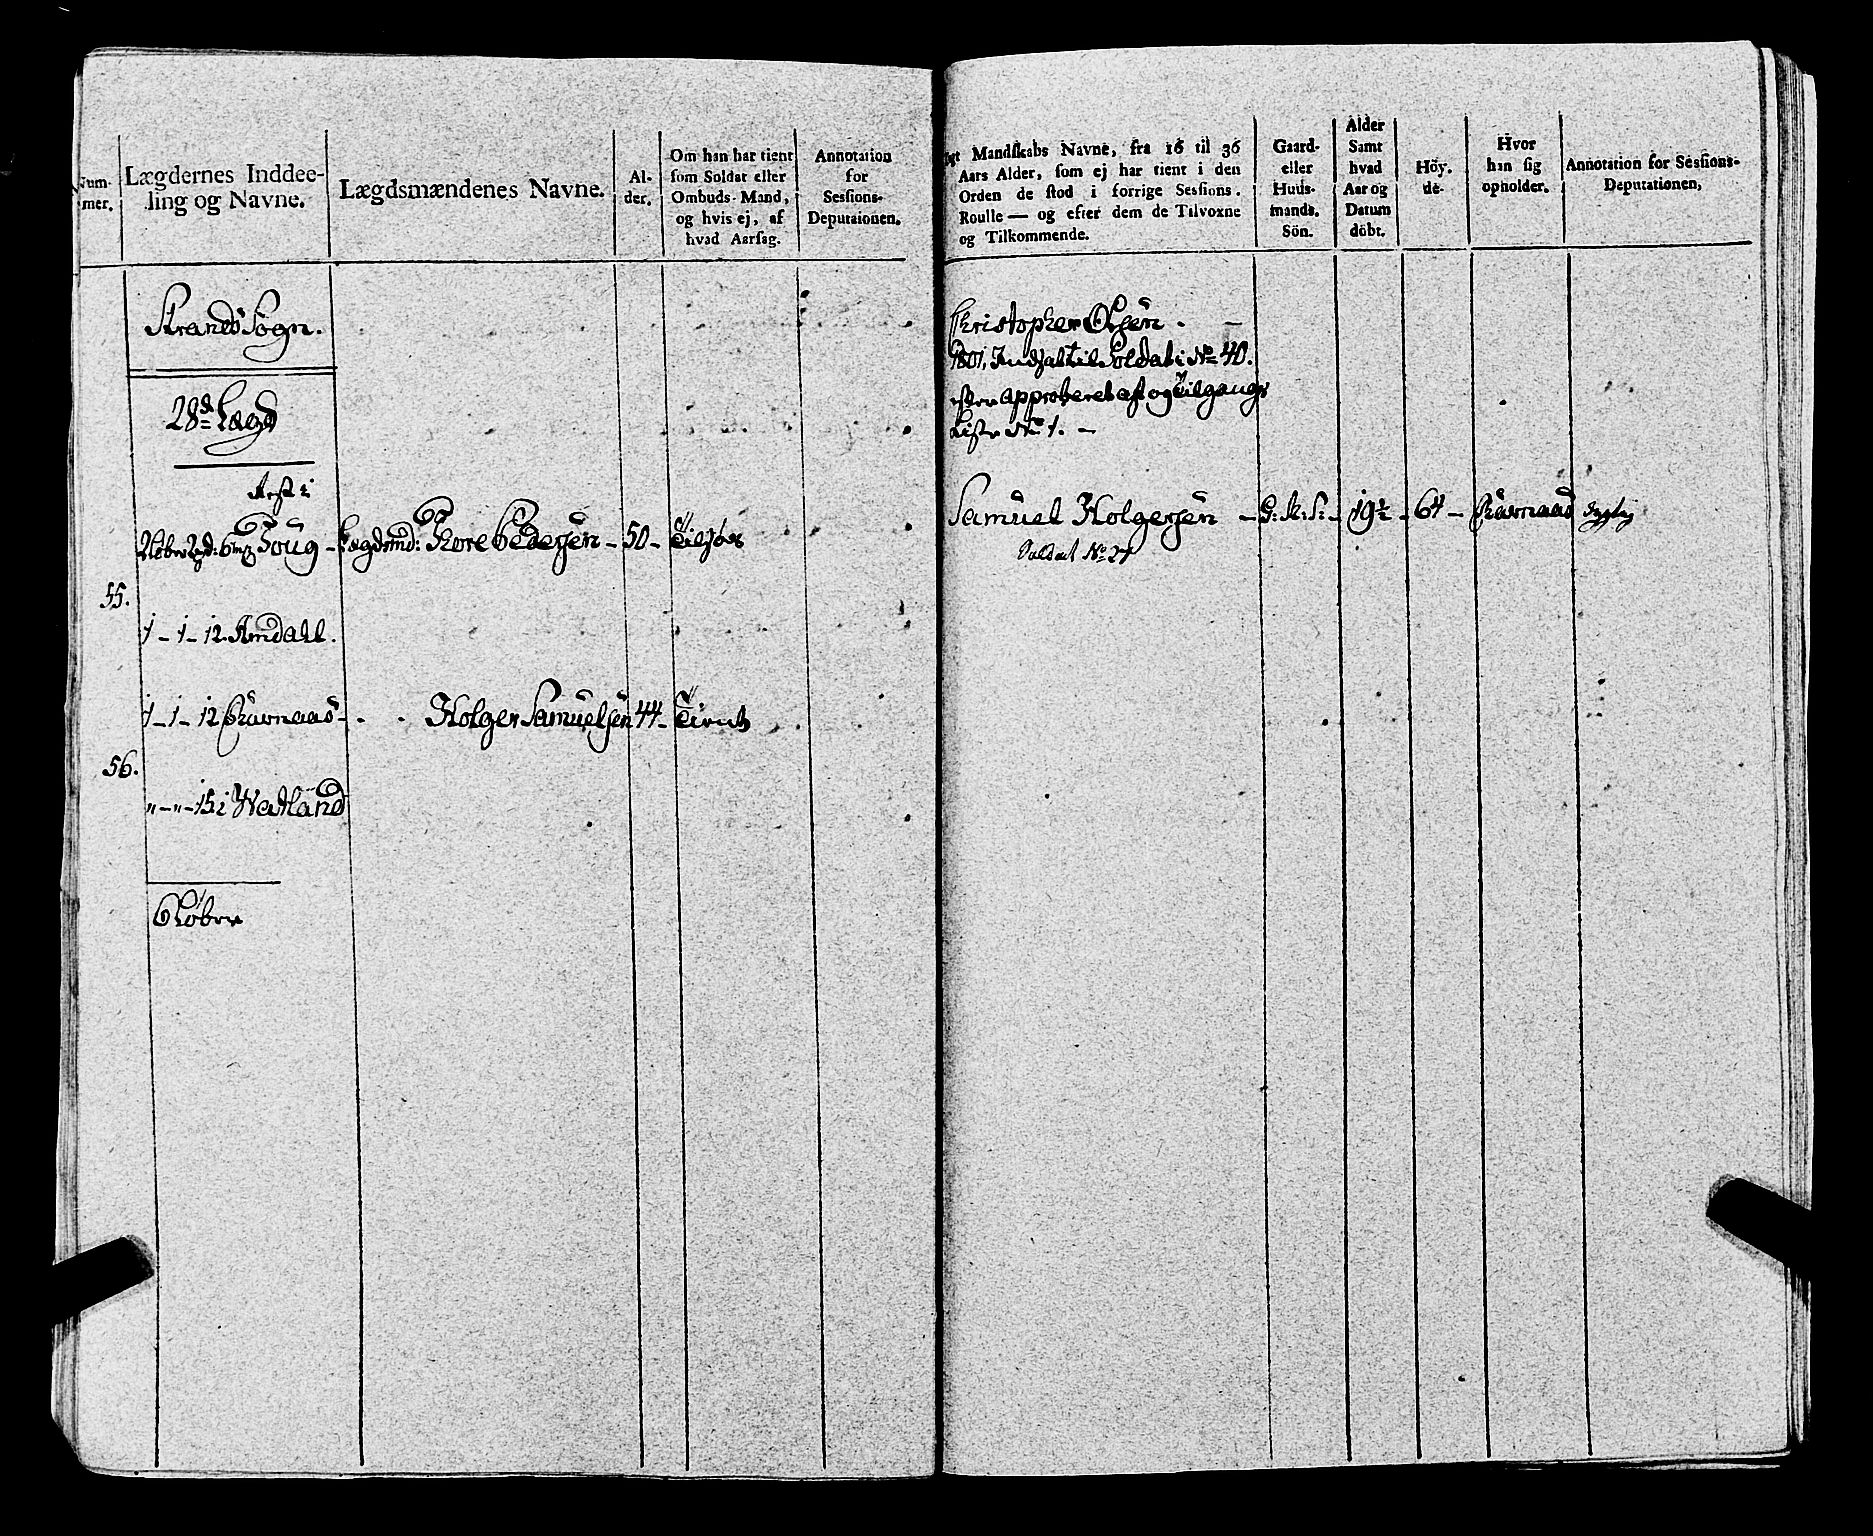 Num-
mer.
Lægdernes Inddee-
ling og Navne.
Lægdsmændenes Navne.
Al-
der.
Om han har tient
som Soldat eller
Ombuds-Mand,
og hvis ej, af
hvad Aarsag.
Annotation
for
Sessions-
Deputaionen.
Strands Sogn.
28de Lægd
55.
Toug - Lægdsmd: Thore Pedersen - 50 -
1 - 1 - 12 Amdahl.
1 - 1 - 12 Ravnaas - Holger Samuelsen 44 - Tient
56.
" - " - 15 i Watland
Løber
Mandskabs Navne, fra 16 til 36
Aars Alder, som ej har tient i den
Orden de stod i forrige Sessions.
Roulle — og efter dem de Tilvoxne
og Tilkommende.
Gaard-
eller
Huus-
mands.
Sön.
Alder
Samt
hvad
Aar og
Datum
döbt.
Höy-
de.
Hvor
han sig
opholder.
Annotation for Sessions-
Deputationen,
Christopher Olsen. -
1801, Indsat til Soldat i No 40.
approberet af og Tilgangs
Liste No 1. -
Samuel Holgersen - G: M: S: - 19½ - 64 - Ravnaas dygtig
Soldat No 27